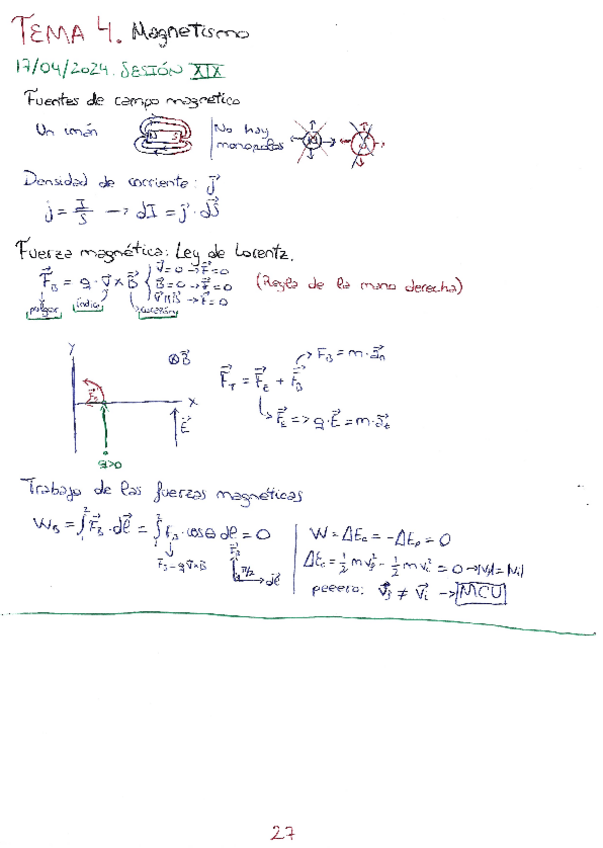 TEMA 4. Magnetismo
17/04/2024. SESIÓN XIX
Fuentes de campo magnético
Un imán | No hay monopolos
N S
Densidad de corriente: j⃗
j = I/S → dI = j⃗ · dS⃗
Fuerza magnética: Ley de Lorentz.
F⃗_B = q · v⃗ × B⃗ { v⃗ = 0 → F⃗ = 0
B⃗ = 0 → F⃗ = 0
v⃗ || B⃗ → F⃗ = 0
(Regla de la mano derecha)
pulgar índice corazón
Y
⊗B⃗
F⃗_B
X
E⃗
q>0
F⃗_T = F⃗_E + F⃗_B
F_B = m · a⃗_n
F⃗_E => q · E⃗ = m · a⃗_t
Trabajo de las fuerzas magnéticas
W_B = ∫₁² F⃗_B · dl⃗ = ∫₁² F_B · cosθ dl = 0
F_B = q v⃗ × B⃗
F⃗_B π/2 dl⃗
W = ΔE_c = -ΔE_p = 0
ΔE_c = 1/2 m v_f² - 1/2 m v_i² = 0 → |v_f| = |v_i|
peeero: v⃗_f ≠ v⃗_i → MCU
27